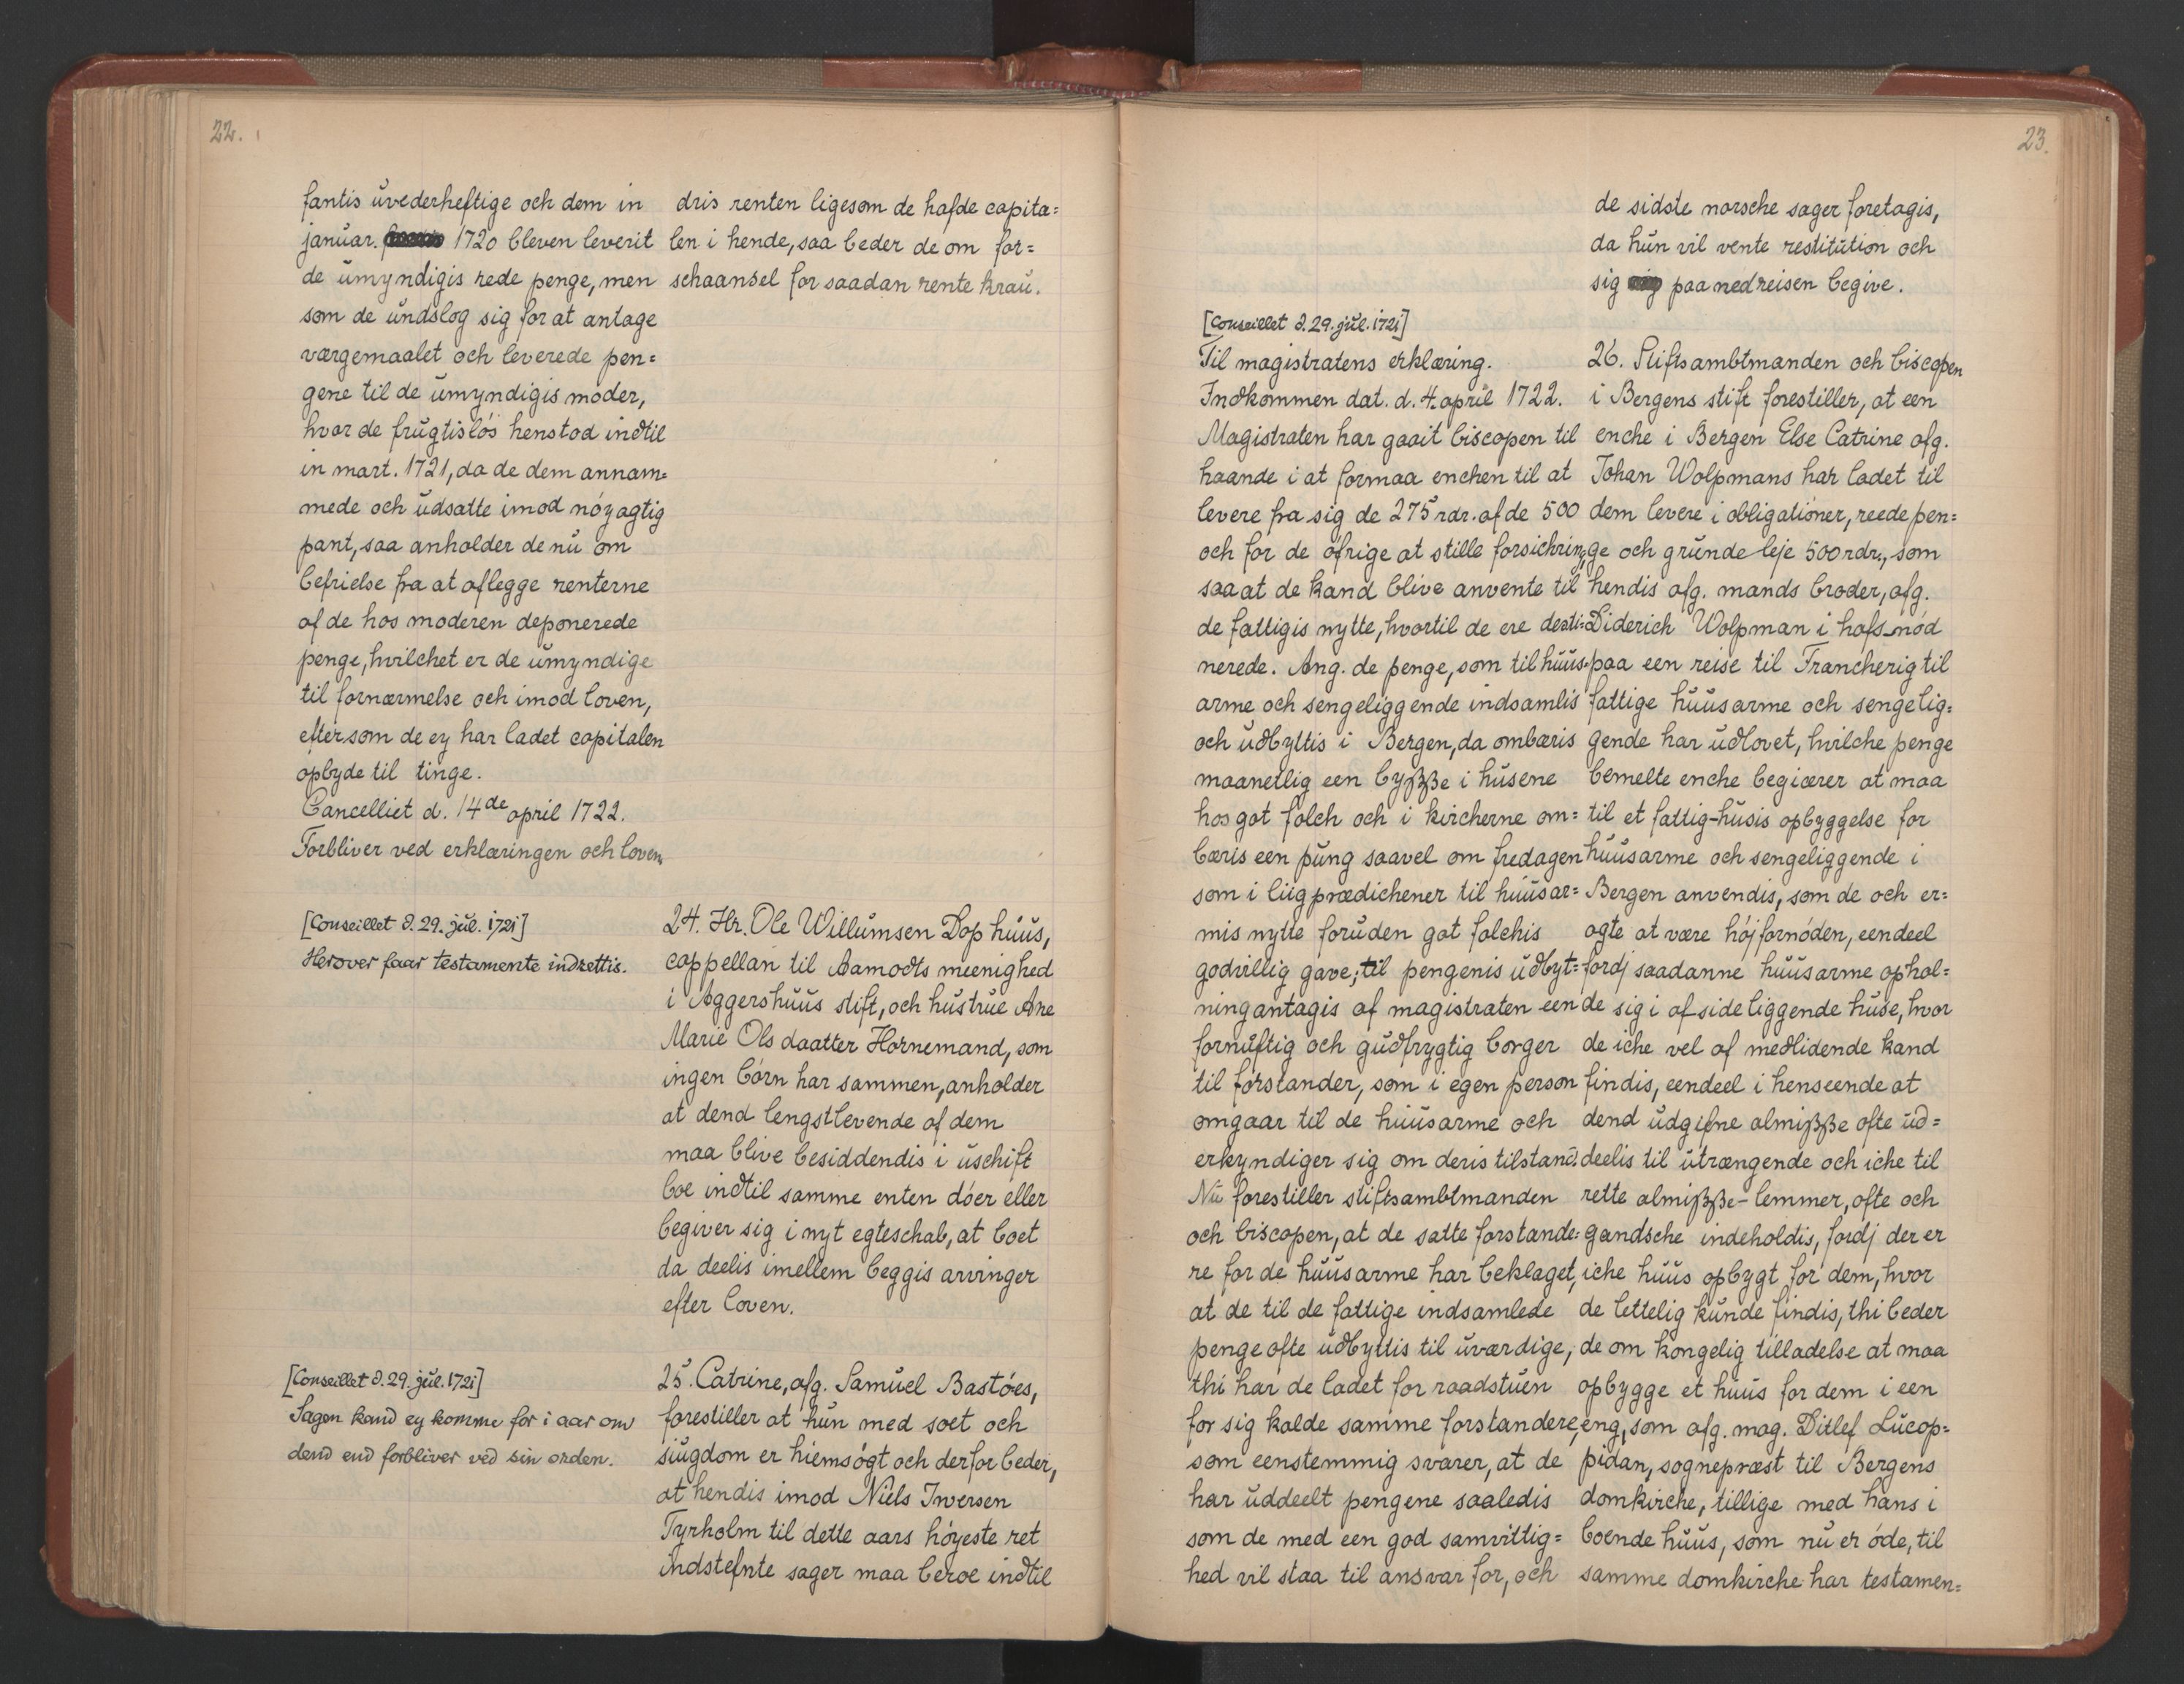 22.
fantis uvederheftige och dem in
januar. 1720 bleven leverit
de umyndigis rede penge, men
som de undslog sig for at antage
værgemaalet och leverede pen=
gene til de umyndigis moder,
hvor de frugtisløs henstod indtil
in mart. 1721, da de dem annam=
mede och udsatte imod nøyagtig
pant, saa anholder de nu om
befrielse fra at aflegge renterne
af de hos moderen deponerede
penge, hvilchet er de umyndige
til fornærmelse och imod loven,
eftersom de ey har ladet capitalen
opbyde til tinge.
Cancelliet d. 14de april 1722.
Forbliver ved erklæringen och loven.
[Conseillet d. 29. jul. 1721]
Herover faar testamente indrettis.
[Conseillet d. 29. jul. 1721]
Sagen kand ey komme for i aar om
dend end forbliver ved sin orden.
dris renten ligesom de hafde capita=
len i hende, saa beder de om for=
schaansel for saadan rente krau.
24. Hr. Ole Willumsen Dop huus,
cappellan til Aamodts meenighed
i Aggershuus stift, och hustrue Ane
Marie Ols daatter Hornemand, som
ingen børn har sammen, anholder
at dend lengstlevende af dem
maa blive besiddendis i uschift
boe indtil samme enten døer eller
begiver sig i nyt egteschab, at boet
da deelis imellem beggis arvinger
efter loven.
25. Catrine, afg. Samuel Bastøes,
forestiller at hun med soet och
siugdom er hiemsøgt och derfor beder,
at hendis imod Niels Iwersen
Tyrholm til dette aars høyeste ret
indstefnte sager maa beroe indtil
23.
[Conseillet d. 29. jul. 1721]
Til magistratens erklæring.
Indkommen dat. d. 4. april 1722.
Magistraten har gaait biscopen til
haande i at formaa enchen til at
levere fra sig de 275 rdr. af de 500
och for de øfrige at stille forsichring,
saa at de kand blive anvente til
de fattigis nytte, hvortil de ere desti=
nerede. Ang. de penge, som til huus=
arme och sengeliggende indsamlis
och udbyttis i Bergen, da ombæris
maanetlig een byßße i husene
hos got folch och i kircherne om=
bæris een pung saavel om fredagen
som i liigprædichener til huusar=
mis nytte foruden got folchis
godvillig gave; til pengenis udbyt=
ning antagis af magistraten een
fornuftig och gudfrygtig borger
til forstander, som i egen person
omgaar til de huusarme och
erkyndiger sig om deris tilstand.
Nu forestiller stiftsambtmanden
och biscopen, at de satte forstande=
re for de huusarme har beklaget,
at de til de fattige indsamlede
penge ofte udbyttis til uværdige,
thi har de ladet for raadstuen
for sig kalde samme forstandere,
som eenstemmig svarer, at de
har uddeelt pengene saaledis
som de med een god samvittig=
hed vil staa til ansvar for, och
de sidste norsche sager foretagis,
da hun vil vente restitution och
sig paa nedreisen begive.
26. Stiftsambtmanden och biscopen
i Bergens stift forestiller, at een
enche i Bergen Else Catrine afg.
Johan Wolpmans har ladet til
dem levere i obligationer, reede pen=
ge och grunde leje 500 rdr., som
hendis afg. mands broder, afg.
Diderich Wolpman i hafsnød
paa een reise til Francherig til
fattige huusarme och sengelig=
gende har udlovet, hvilche penge
bemelte enche begiærer at maa
til et fattig-husis opbyggelse for
huusarme och sengeliggende i
Bergen anvendis, som de och er=
agte at være høj fornøden, eendeel
fordj saadanne huusarme ophol=
de sig i af side liggende huse, hvor
de iche vel af medlidende kand
findis, eendeel i henseende at
dend udgifne almißße ofte ud=
deelis til utrængende och iche til
rette almißße-lemmer, ofte och
gandsche indeholdis, fordj der er
iche huus opbygt for dem, hvor
de lettelig kunde findis, thi beder
de om kongelig tilladelse at maa
opbygge et huus for dem i een
eng, som afg. mag. Ditlef Lucop=
pidan, sognepræst til Bergens
domkirche, tillige med hans i
boende huus, som nu er øde, til
samme domkirche har testamen=